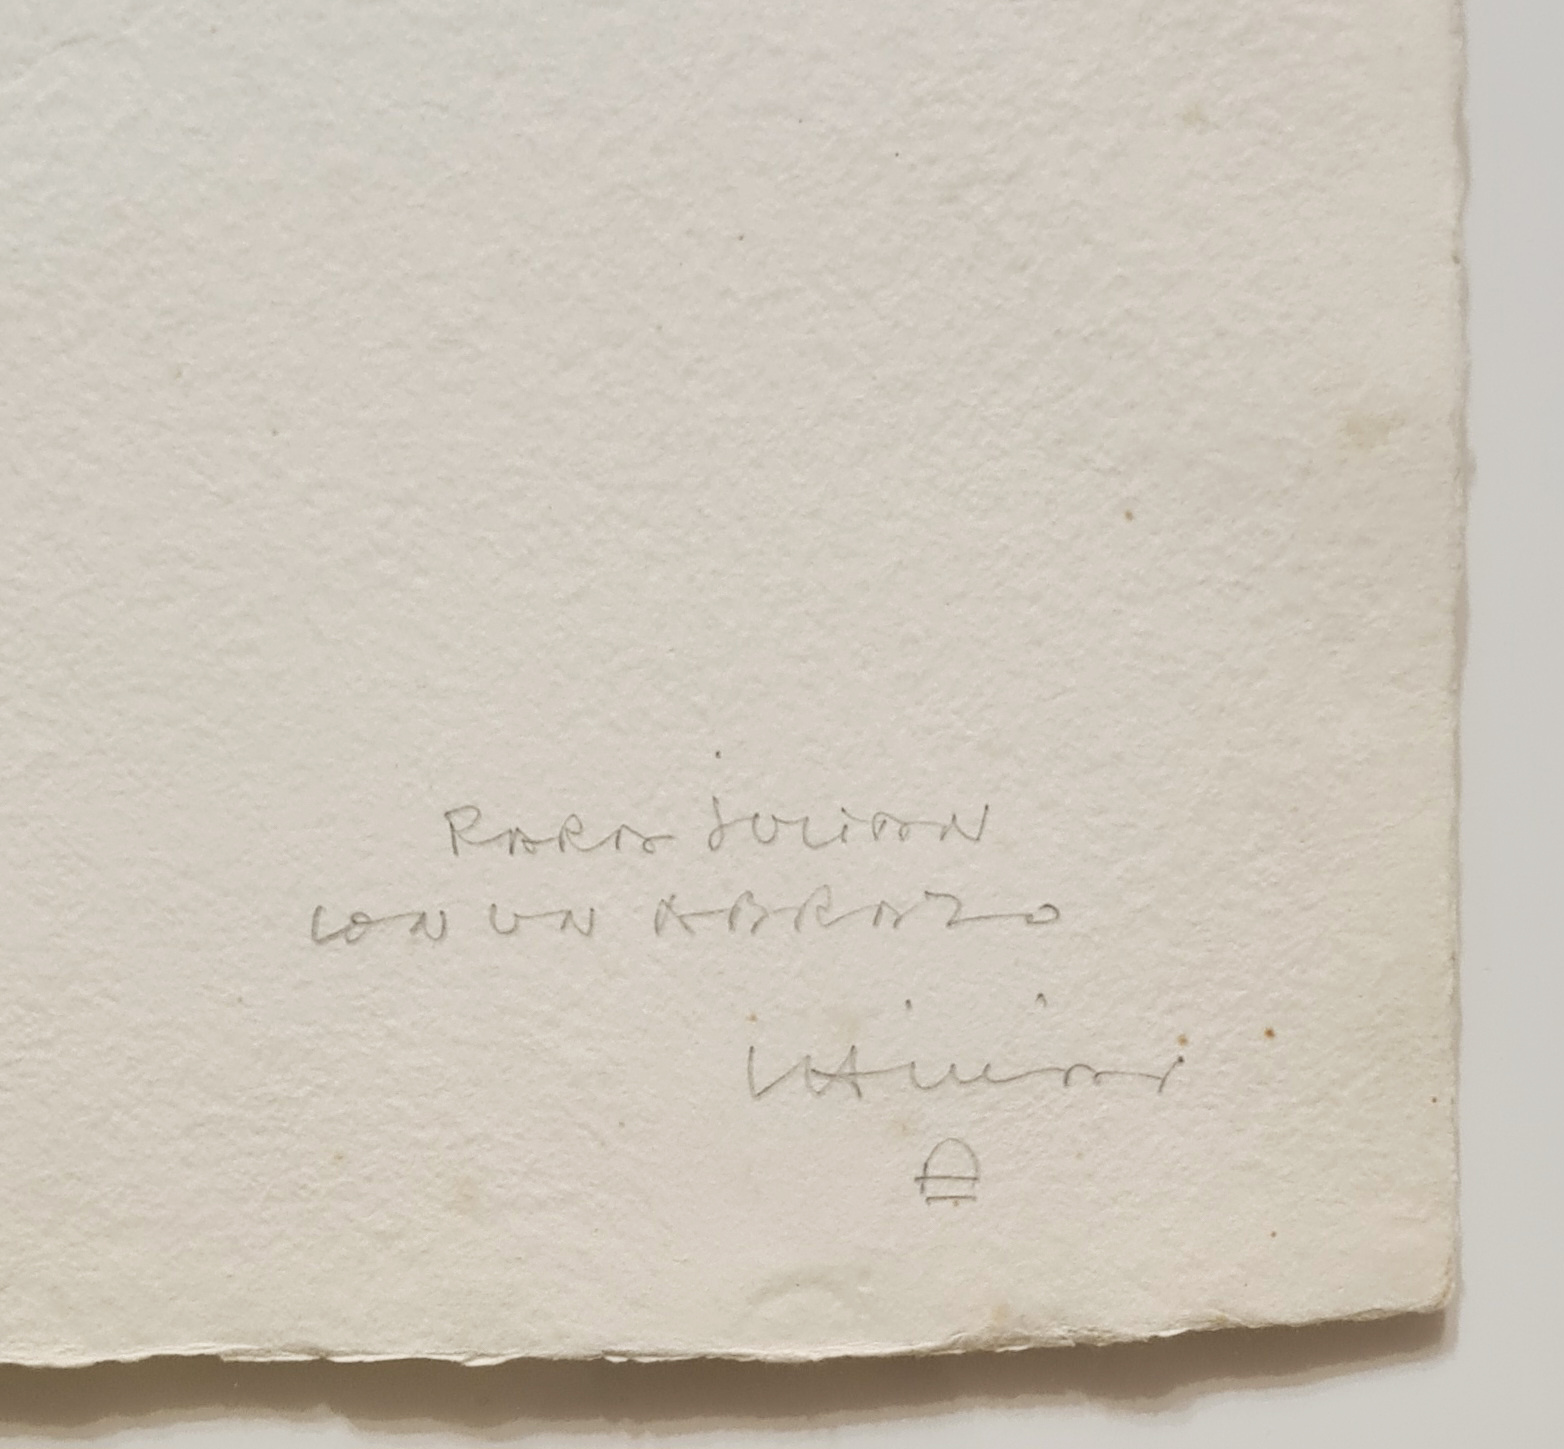 PARA JULIAN
CON UN ABRAZO